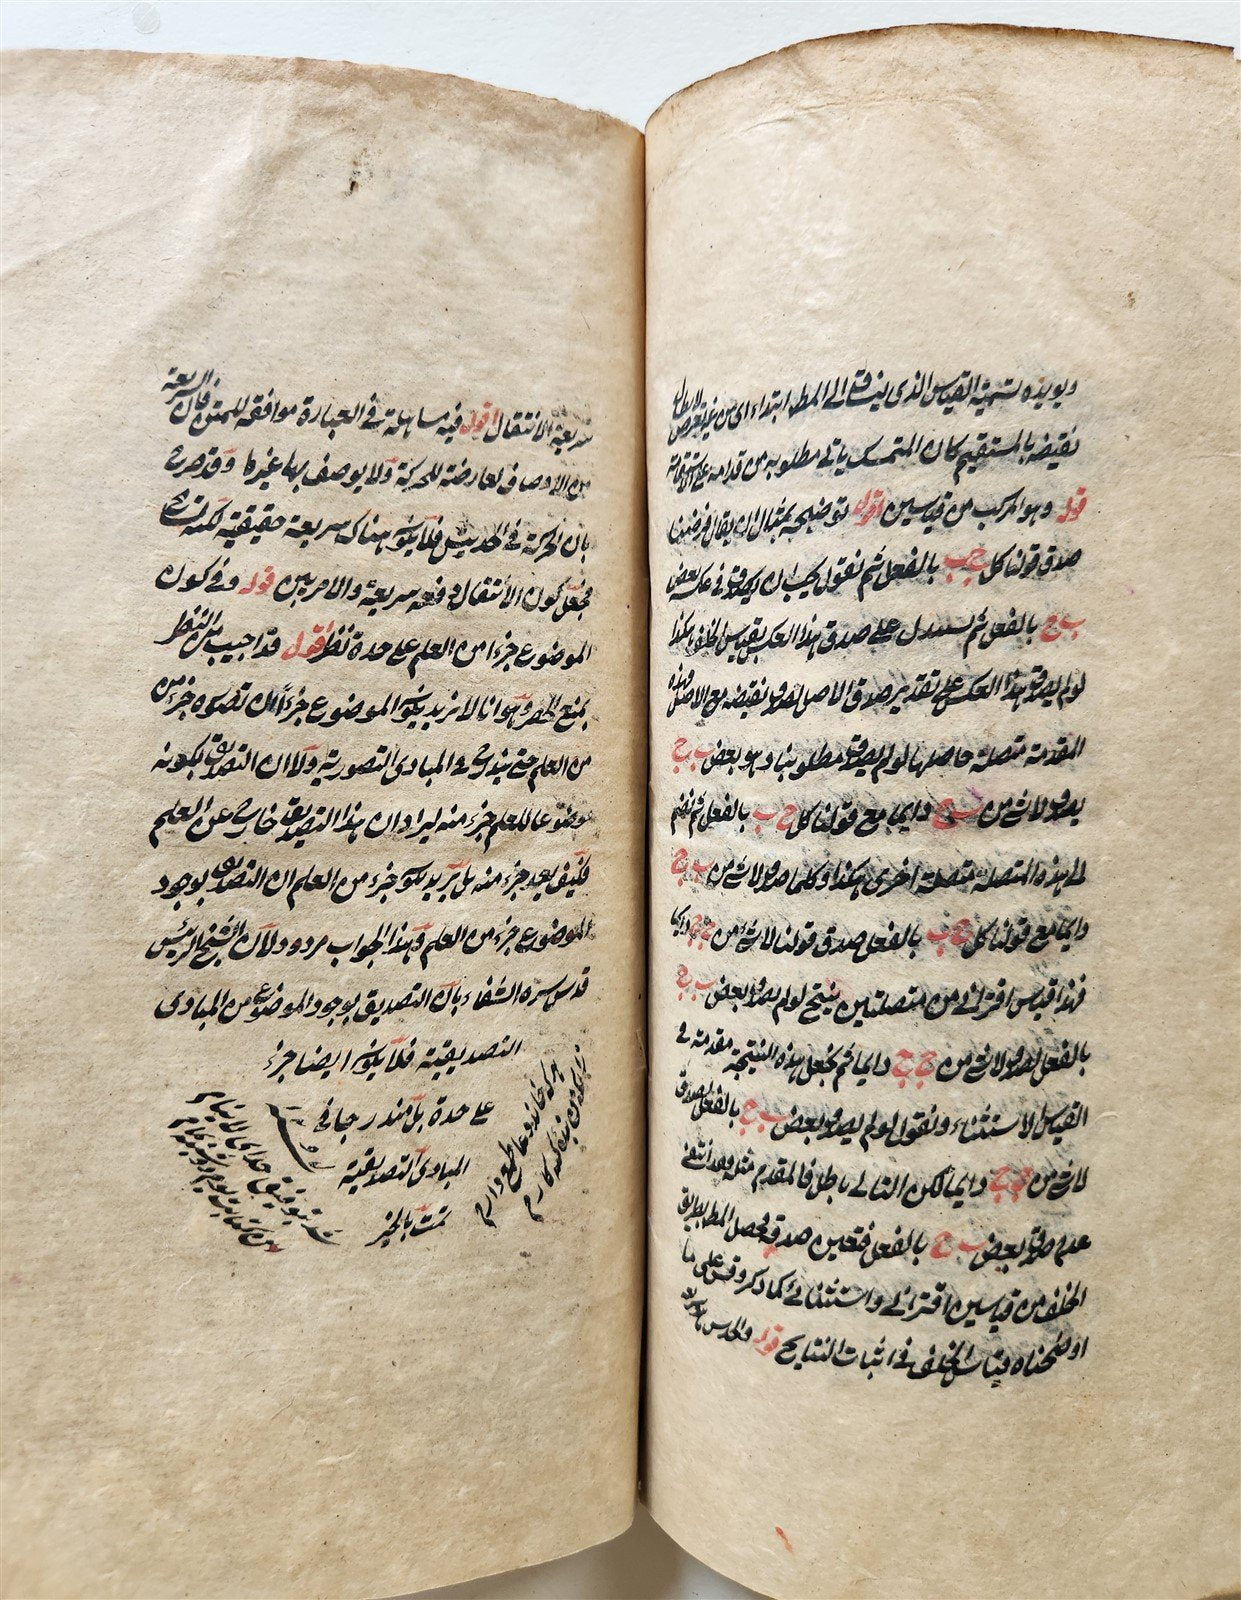 ويويده تسمية القياس الذى ينساق الى المط ابتداء اى من غير تعرض لابطال
نقيضه بالمستقيم كان المتمسك ياتى مطلوبه من قدامه على استقامة
قوله وهو المركب من قياسين اقول توضيحه بمثال ان يقال فرضنا
صدق قولنا كل ج ب بالفعل ثم نقول يجب ان يصدق فى عكسه بعض
ب ج بالفعل ثم نستدل على صدق هذا العكس بقياس الخلف هكذا
لو لم يصدق هذا العكس على تقدير صدق الاصل لصدق نقيضه مع الاصل وهذه
المقدمة متصلة حاصلها لو لم يصدق مطلوبنا وهو بعض ب ج
يصدق لا شئ من ب ج دايما مع قولنا كل ج ب بالفعل ثم نضم
الى هذه المتصلة متصلة اخرى هكذا وكلما صدق لا شئ من ب ج
دايما مع قولنا كل ج ب بالفعل صدق قولنا لا شئ من ج ج دايما
فهذا قياس اقترانى من متصلتين ينتج لو لم يصدق بعض ب ج
بالفعل لصدق لا شئ من ج ج دايما ثم نجعل هذه النتيجة مقدمة فى
القياس الاستثناء ونقول لو لم يصدق بعض ب ج بالفعل لصدق
لا شئ من ج ج دايما لكن التالى باطل فالمقدم مثله وقد انتفى
عدم صدق بعض ب ج بالفعل فتعين صدقه فحصل المط بطريق
الخلف من قياسين اقترانى واستثنائى كما ذكر وقس على ما
اوضحناه قياس الخلف فى اثبات النتايج قوله والحدس
سريعة الانتقال اقول فيه مساهلة فى العبارة موافقه للمتن فان السريعة
من الاوصاف لعارضة للحركة ولا يوصف بها غيرها وقد صرح
بان لا حركة فى الحدس فلا يكون هناك سريعة حقيقية لكنه تسامح
فجعل كون الانتقال دفعه سريعة والامر هين قوله وفى كون
الموضوع جزءا من العلم على حدة نظر اقول قد اجيب من النظر
بمنع الحصر وهو انا لا نريد بكون الموضوع جزءا ان تصوره جزء من
من العلم حتى يندرج فى المبادى التصورية ولا ان التصديق بكونه
موضوعا للعلم جزء منه ليراد ان هذا التصديق خارج عن العلم
فكيف يعد جزء منه بل نريد بكونه جزء من العلم ان التصديق بوجود
الموضوع جزء من العلم وهذا الجواب مردود لان الشيخ الرئيس
قدس سره الشفاء بان التصديق بوجود الموضوع من المبادى
التصديقية فلا يكون ايضا جزء
على حدة بل مندرجا فى
المبادى التصديقية
تمت بالخير
هر كه خواند دعا طمع دارم
زانكه من بنده كنه كارم